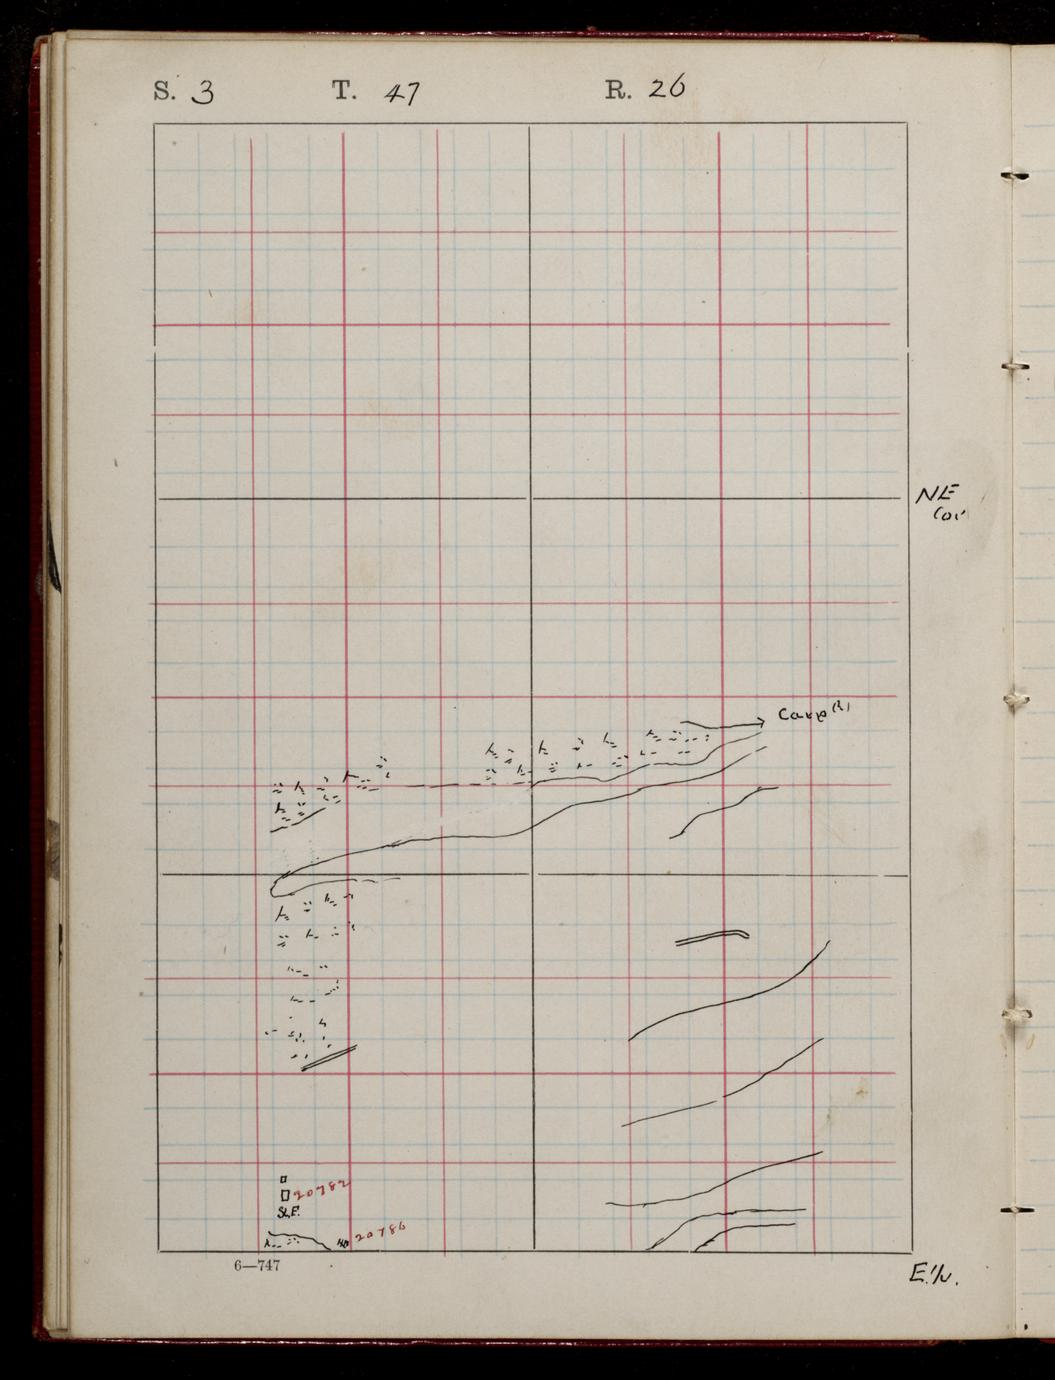 S. 3 T. 47 R. 26
NE
Cor
Carp (R)
20782
SLE.
20786
6—747
E.¼.